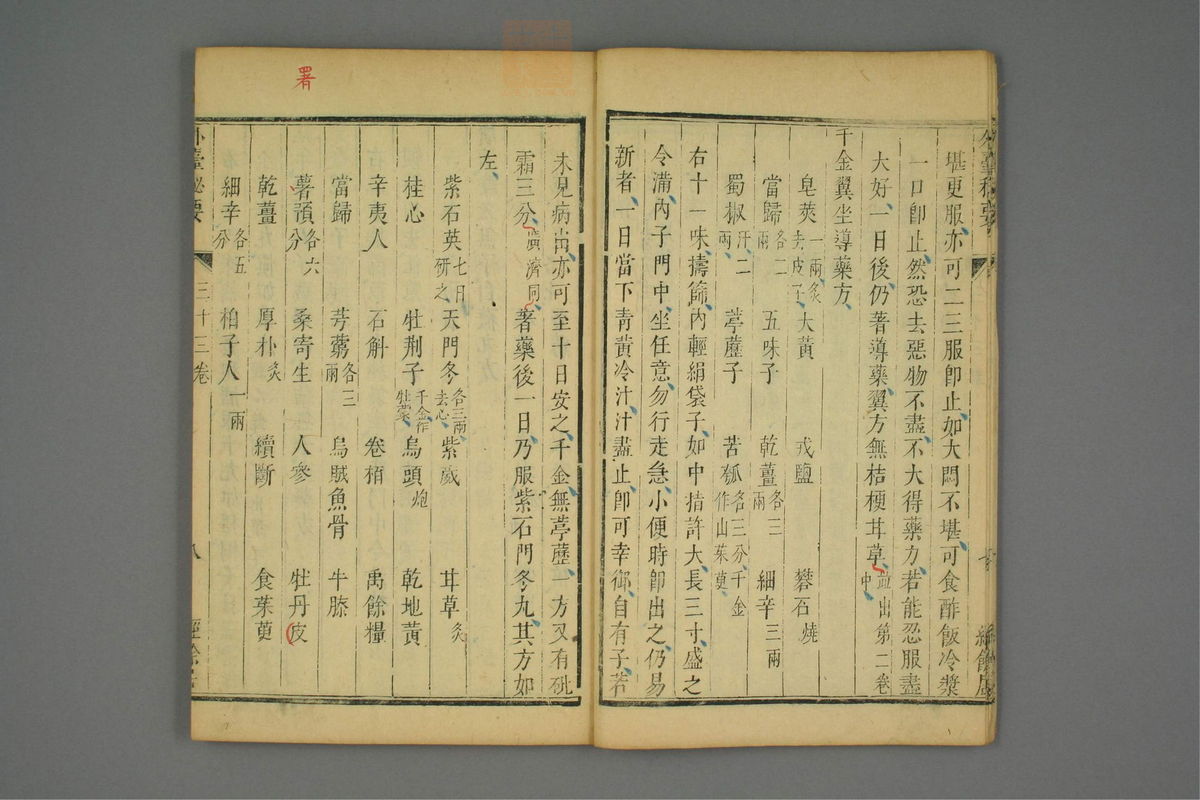 堪更服亦可二三服即止如大悶不堪可食酢飯冷漿
一口即止然恐去惡物不盡不大得藥力若能忍服盡
大好一日後仍著導藥翼方無桔梗甘草並出第二卷中
千金翼坐導藥方
皂莢一兩炙去皮子 大黃 戎鹽 礬石燒
當歸各二兩 五味子 乾薑各三兩 細辛三兩
蜀椒汗二兩 葶藶子 苦瓠各三分千金作山茱萸
右十一味擣篩內輕絹袋子如中指許大長三寸盛之
令滿內子門中坐任意勿行走急小便時即出之仍易
新者一日當下青黃冷汁汁盡止即可幸御自有子若
未見病出亦可至十日安之千金無葶藶一方又有砒
霜三分廣濟同著藥後一日乃服紫石門冬丸其方如
左
紫石英七日研之 天門冬各三兩去心 紫葳 甘草炙
桂心 牡荆子千金作牡蒙 烏頭炮 乾地黃
辛夷人 石斛 卷栢 禹餘糧
當歸 芎藭各三兩 烏賊魚骨 牛膝
薯蕷各六分 桑寄生 人參 牡丹皮
乾薑 厚朴炙 續斷 食茱萸
細辛各五分 柏子人一兩
外臺秘要 三十三卷 八 經餘居
署